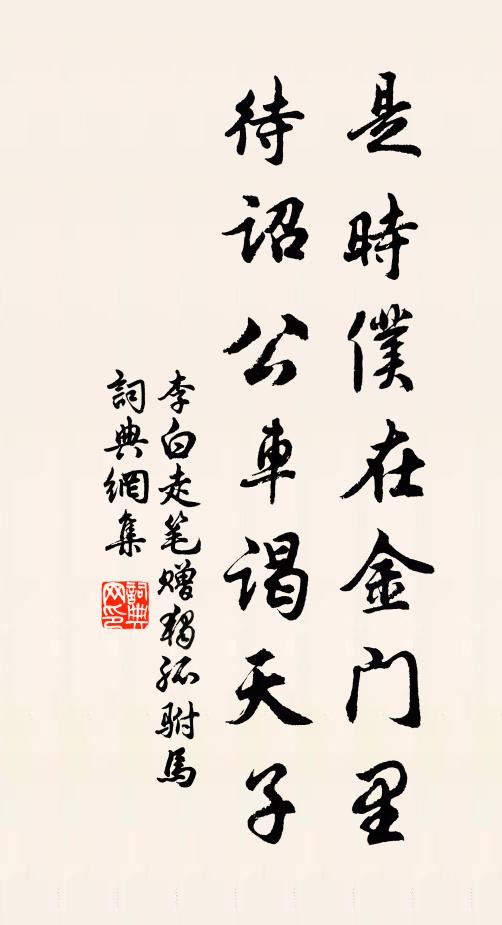 是時僕在金门里
待诏公車謁天子
李白走笔赠獨孤駙馬
詞典網集
詞典网印